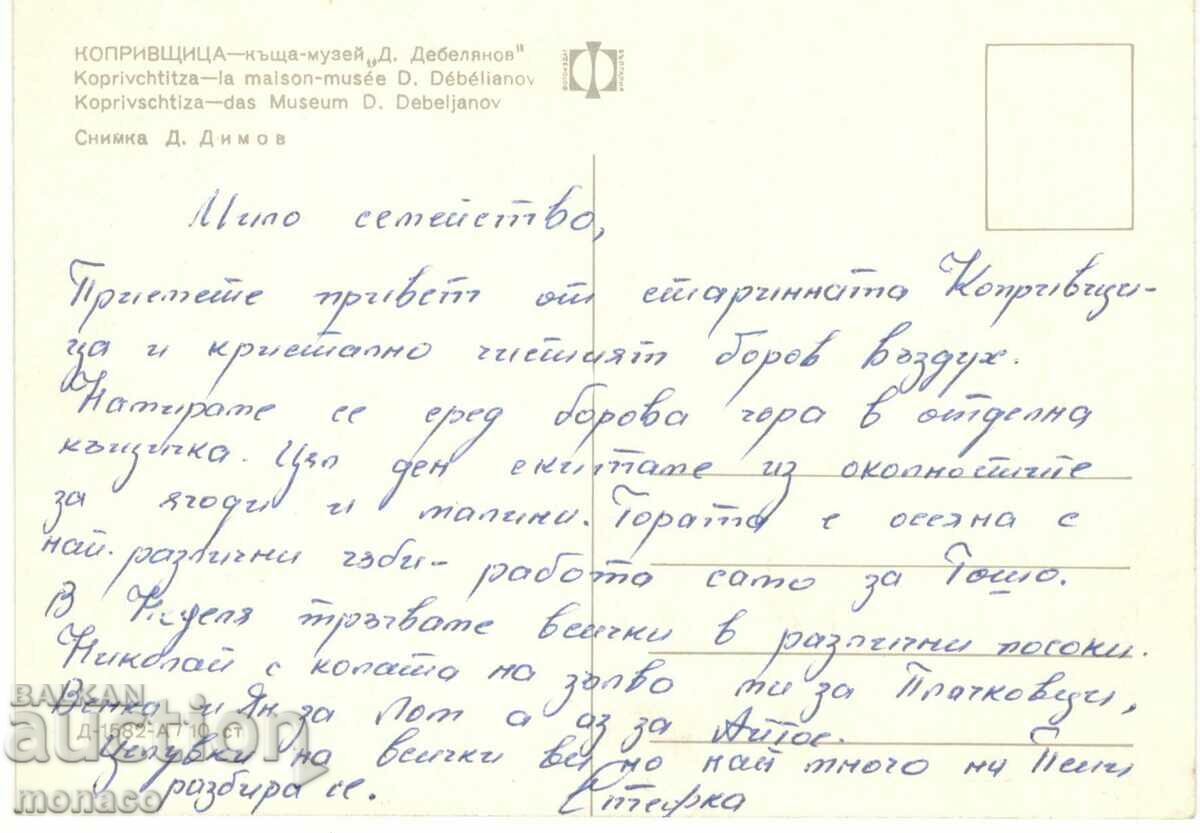 КОПРИВЩИЦА—къща-музей „Д. Дебелянов"
Koprivchtitza—la maison-musée D. Débélianov
Koprivschtiza—das Museum D. Debeljanov
Снимка Д. Димов
ФОТОИЗДАТ БЪЛГАРИЯ
Мило семейство,
Приемете привет от старинната Копривщи-
ца и кристално чистият боров въздух.
Намираме се сред борова гора в отделна
къщичка. Цял ден скитаме из околностите
за ягоди и малини. Гората е осеяна с
най-различни гъби - работа само за Гошо.
В Неделя тръгваме всички в различни посоки.
Николай с колата на ми за Плачковци,
Венка и Ян за Лом а аз за Айтос.
Целувки на всички ви но най много на Пепи
разбира се. Стефка
Д-1582-А / 10 ст
BALKAN
auction
monaco